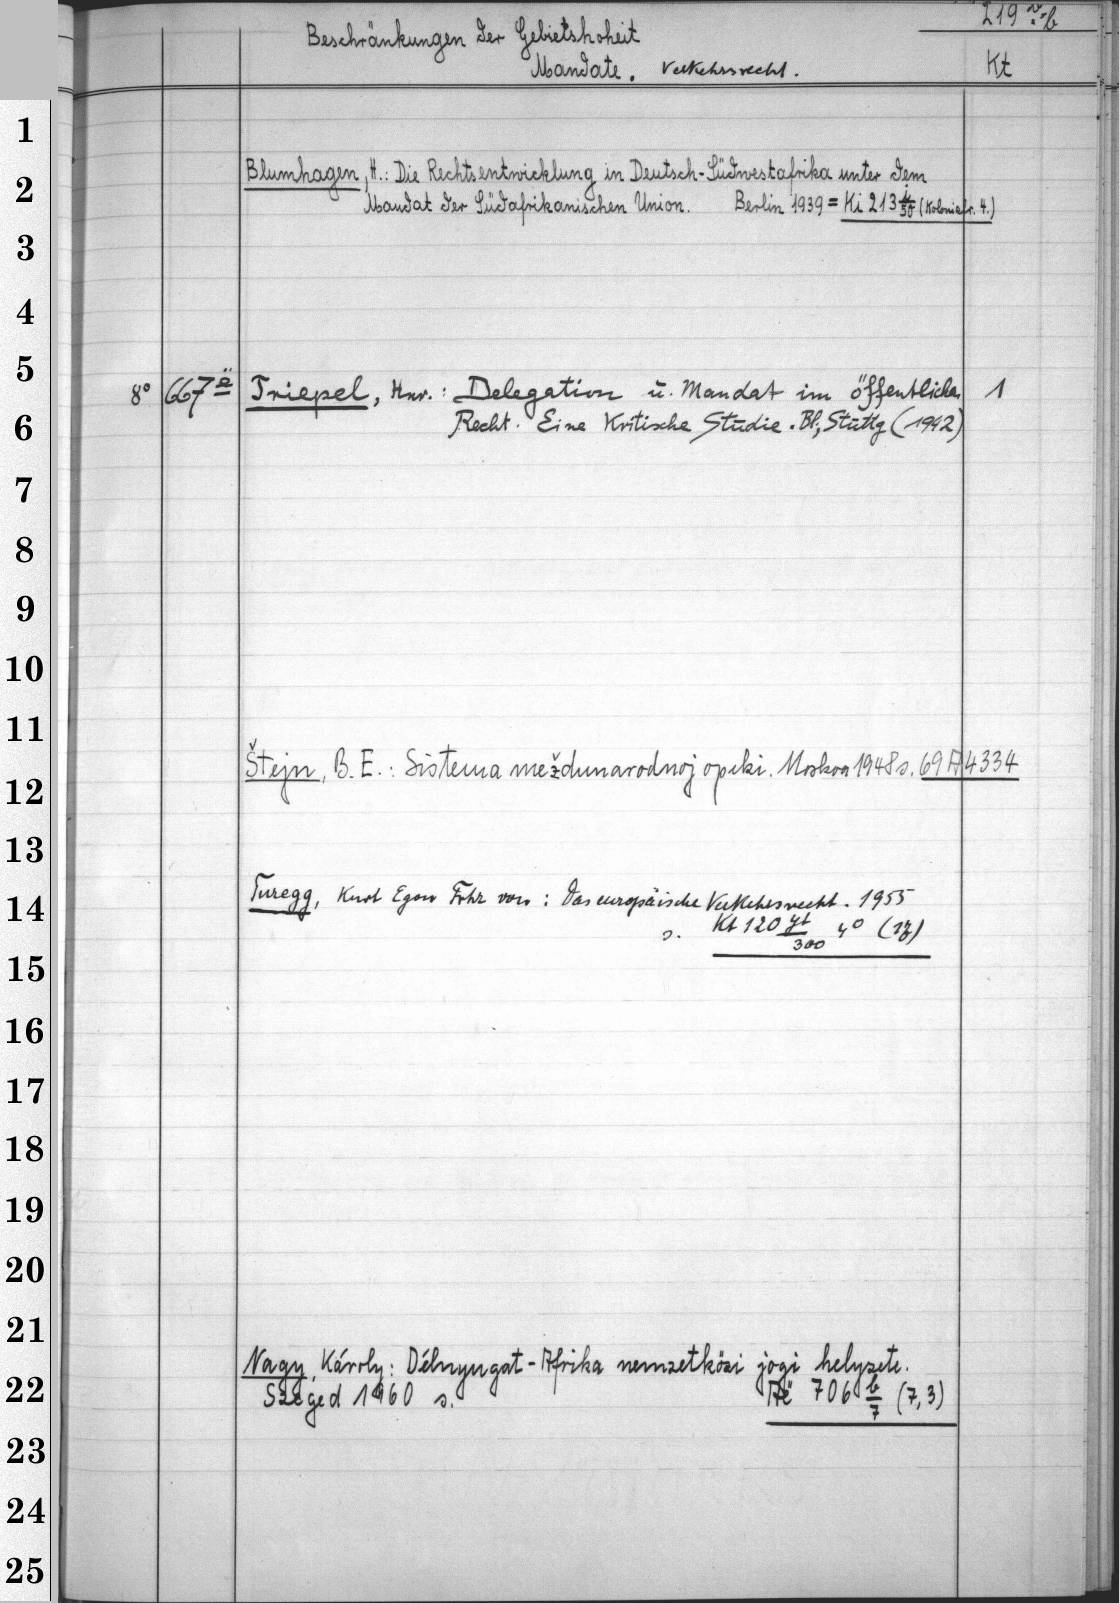 219 v-b
Beschränkungen der Gebietshoheit
Mandate. Verkehrsrecht.
Kt
1
2
3
4
5
6
7
8
9
10
11
12
13
14
15
16
17
18
19
20
21
22
23
24
25
Blumhagen, H.: Die Rechtsentwicklung in Deutsch-Südwestafrika unter dem
Mandat der Südafrikanischen Union. Berlin 1939 = Ki 213 i/50 (Kolonialr. 4.)
8° 667 ä Triepel, Hnr.: Delegation u. Mandat im öffentlichen 1
Recht. Eine Kritische Studie. Bl, Stuttg (1942)
Štejn, B. E.: Sistema meždunarodnoj opeki. Moskva 1948 s. 69 A 4334
Turegg, Kurt Egon Frhr von: Das europäische Verkehrsrecht. 1955
s. Kt 120 yt/300 4° (17)
Nagy, Károly: Délnyugat-Afrika nemzetközi jogi helyzete.
Szeged 1960 s. 706 b/7 (7,3)